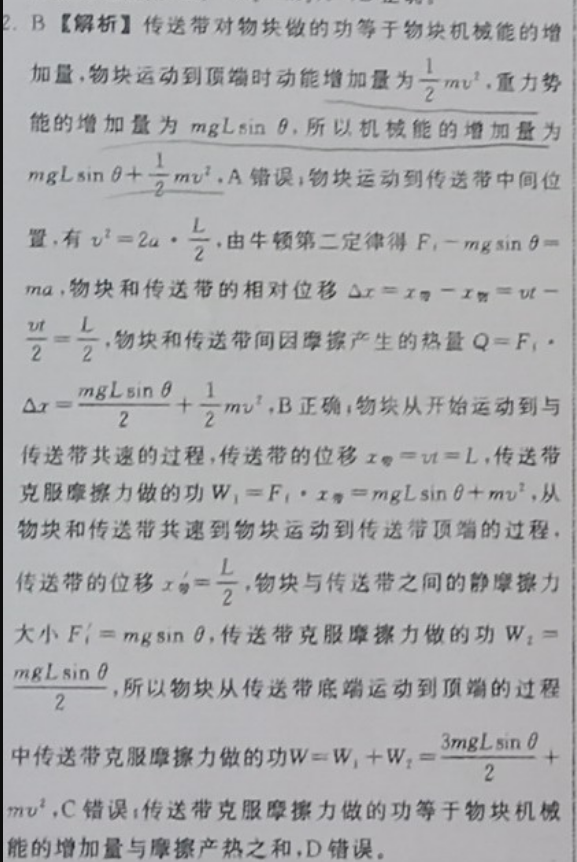 2. B【解析】传送带对物块做的功等于物块机械能的增
加量,物块运动到顶端时动能增加量为\frac{1}{2}mv²,重力势
能的增加量为 mgLsin θ,所以机械能的增加量为
mgLsin θ+\frac{1}{2}mv²,A 错误;物块运动到传送带中间位
置,有 v²=2a·\frac{L}{2},由牛顿第二定律得 F_f-mgsin θ=
ma,物块和传送带的相对位移 Δx=x_带-x_物=vt-
\frac{vt}{2}=\frac{L}{2},物块和传送带间因摩擦产生的热量 Q=F_f·
Δx=\frac{mgLsin θ}{2}+\frac{1}{2}mv²,B 正确;物块从开始运动到与
传送带共速的过程,传送带的位移 x_带=vt=L,传送带
克服摩擦力做的功 W_1=F_f·x_带=mgLsin θ+mv²,从
物块和传送带共速到物块运动到传送带顶端的过程,
传送带的位移 x'_带=\frac{L}{2},物块与传送带之间的静摩擦力
大小 F'_f=mgsin θ,传送带克服摩擦力做的功 W_2=
\frac{mgLsin θ}{2},所以物块从传送带底端运动到顶端的过程
中传送带克服摩擦力做的功W=W_1+W_2=\frac{3mgLsin θ}{2}+
mv²,C 错误;传送带克服摩擦力做的功等于物块机械
能的增加量与摩擦产热之和,D 错误。